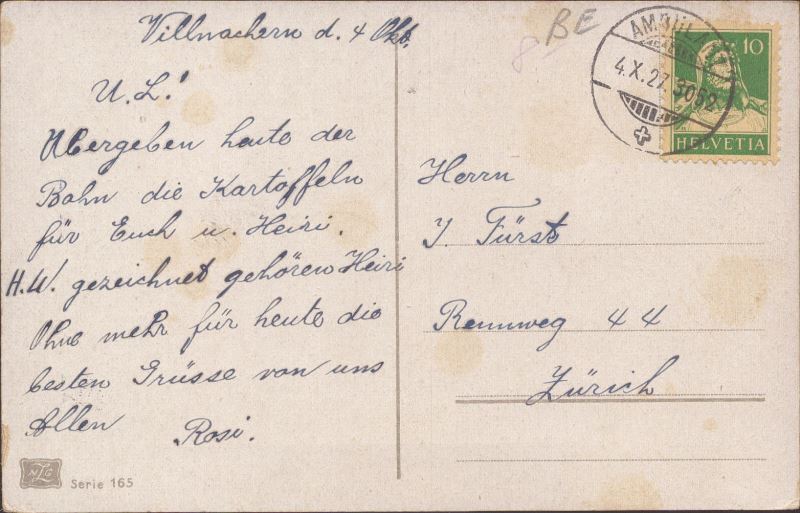 Villnachern d. 4 Okt.
U. L.!
Übergeben heute der
Bahn die Kartoffeln
für Euch u. Heiri.
H.W. gezeichnet gehören Heiri
Ohne mehr für heute die
besten Grüsse von uns
Allen Rosi.
NZG
Serie 165
8 BE
AMBULANT
4.X.27. 3092
10
HELVETIA
Herrn
J. Fürst
Rennweg 44
Zürich